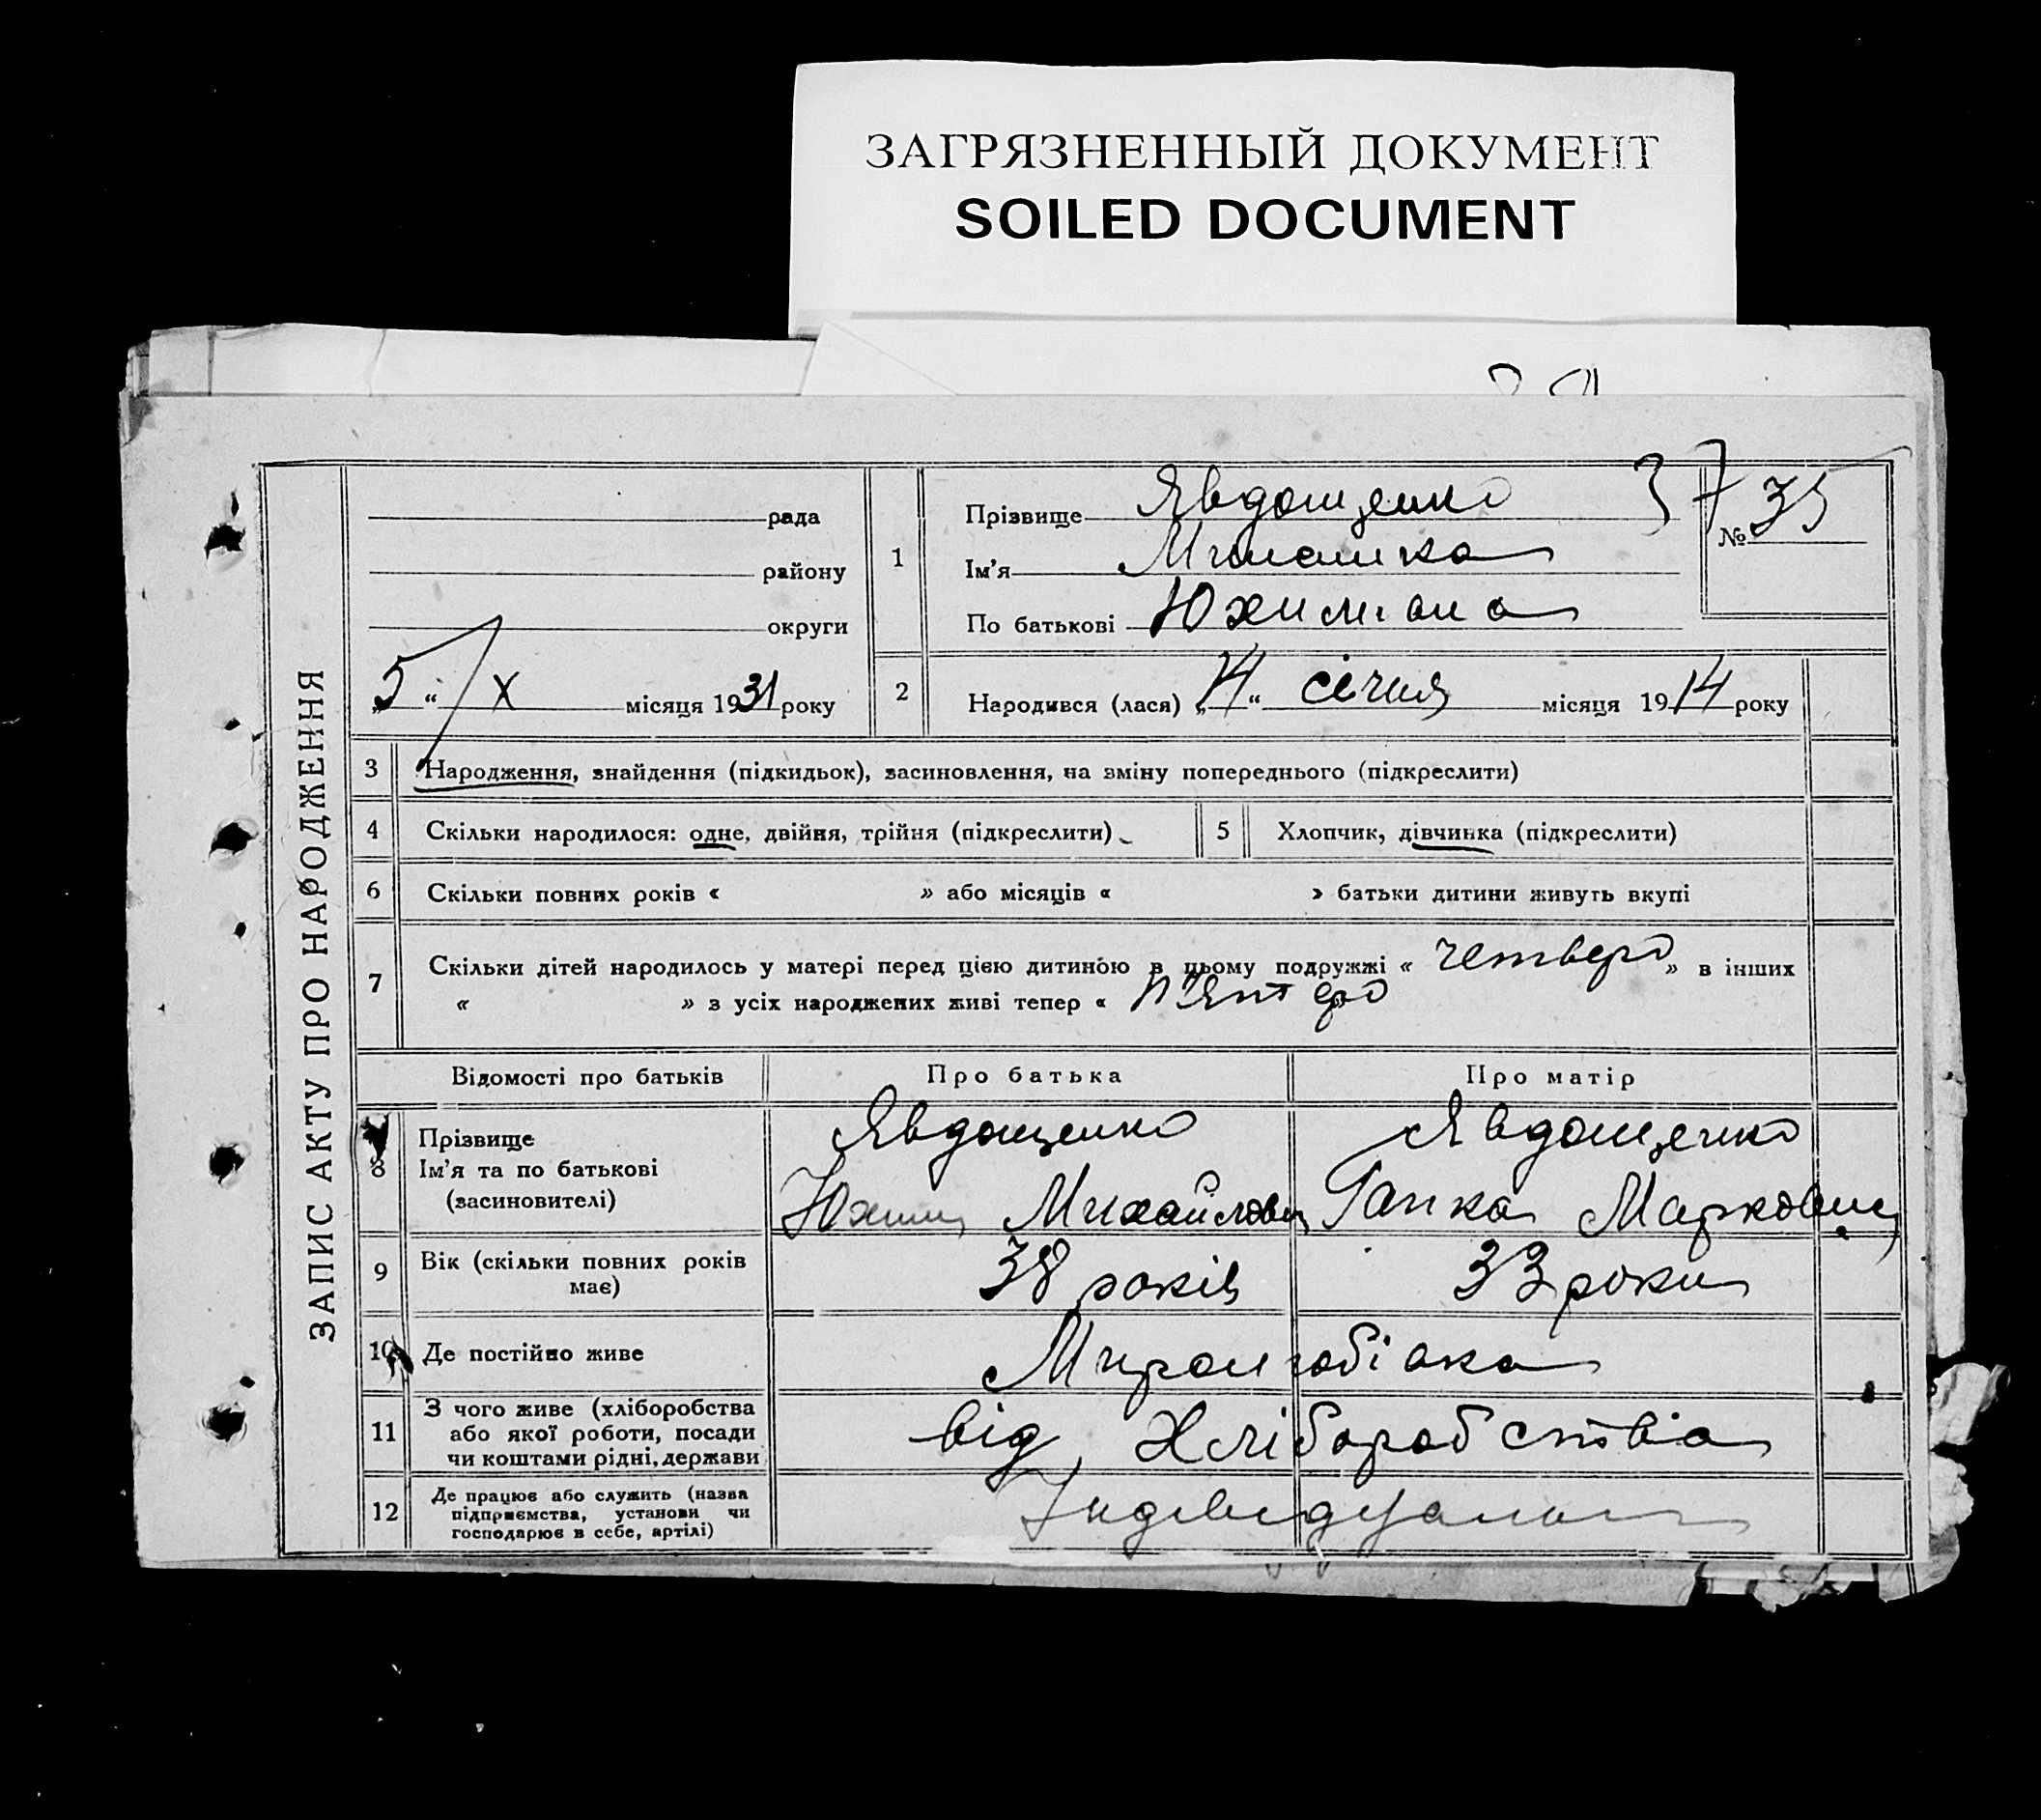 ЗАГРЯЗНЕННЫЙ ДОКУМЕНТ
SOILED DOCUMENT
ЗАПИС АКТУ ПРО НАРОДЖЕННЯ
рада
району
округи
„5“ X місяця 1931 року
1
Прізвище Явдощенко
37
№ 35
Ім'я
По батькові Юхимівна
2
Народився (лася) „14“ січня місяця 1914 року
3 Народження, знайдення (підкидьок), засиновлення, на зміну попереднього (підкреслити)
4 Скільки народилося: одне, двійня, трійня (підкреслити)
5 Хлопчик, дівчинка (підкреслити)
6 Скільки повних років « » або місяців « » батьки дитини живуть вкупі
7 Скільки дітей народилось у матері перед цією дитиною в цьому подружжі « четверо » в інших
« » з усіх народжених живі тепер « п'ятеро
Відомості про батьків Про батька Про матір
8 Прізвище Явдощенко Явдощенко
Ім'я та по батькові Юхим Михайлович Ганка Марковна
(засиновителі)
9 Вік (скільки повних років має) 38 років 33 роки
10 Де постійно живе
11 З чого живе (хліборобства
або якої роботи, посади
чи коштами рідні, держави
від Хліборобства
12 Де працює або служить (назва
підприємства, установи чи
господарює в себе, артілі)